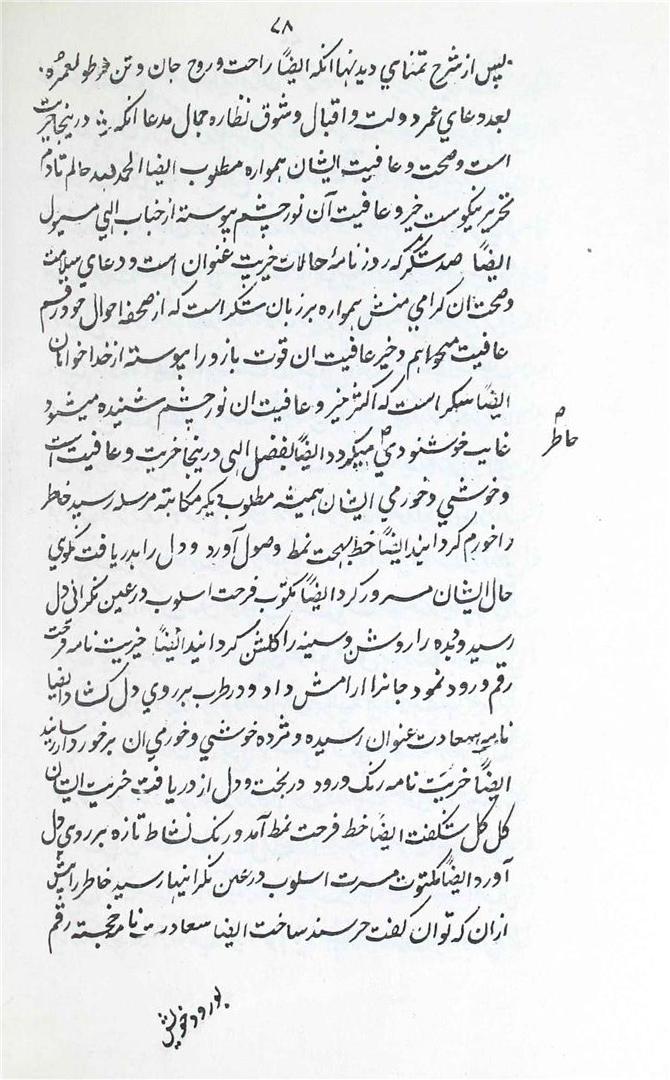 ٧٨
پس از شرح تمنای دیدنها آنکه ایضاً راحت و روح جان و تن طولعمره
بعد دعای عمر و دولت و اقبال و شوق نظاره جمال مدعا آنکه درینجا خیریت
است و صحت و عافیت ایشان همواره مطلوب ایضا الحمد لله حال تادم
تحریر نیکوست خیر و عافیت آن نور چشم پیوسته از جناب الهی مسئول
ایضاً صد شکر که روزنامهٔ حالات خیریت عنوان است و دعای سلامت
و صحت ان کرامی منش همواره بر زبان شکر است که از صحفه احوال خود رقم
عافیت میخواهم و خیر عافیت ان قوت بازو را پیوسته از خدا خواهان
ایضاً شکر است که اکثر خیر و عافیت ان نور چشم شنیده میشود
غایب خوشنودی میکردد ایضاً بفضل الهی درینجا خیریت و عافیت است
و خوشی و خورمی ایشان همیشه مطلوب دیکر مکاتبه مرسله رسید خاطر
خاطر
را خورم کردانید ایضاً خط بهجت نمط وصول آورد و دل را بدریافت نکوی
حال ایشان مسرور کرد ایضاً مکتوب فرحت اسلوب در عین نکرانی دل
رسید و دیده را روشن و سینه را کلشن کردانید ایضاً خیریت نامه فرحت
رقم ورود نمود جانرا ارامش داد و در طرب بر روی دل کشاد ایضا
نامه سعادت عنوان رسیده و مژده خوشی و خورمی ان برخوردار رسانید
ایضاً خریت نامه رنک ورود در بخت و دل از دریافت خریت ایشان
کل کل شکفت ایضاً خط فرحت نمط آمد و رنک نشاط تازه بر روی دل
آورد ایضاً مکتوب مسرت اسلوب در عین نکرانیها رسید خاطر را بیش
ازان که توان کفت خرسند ساخت ایضا سعادت نامه خجسته رقم
بورود خویش